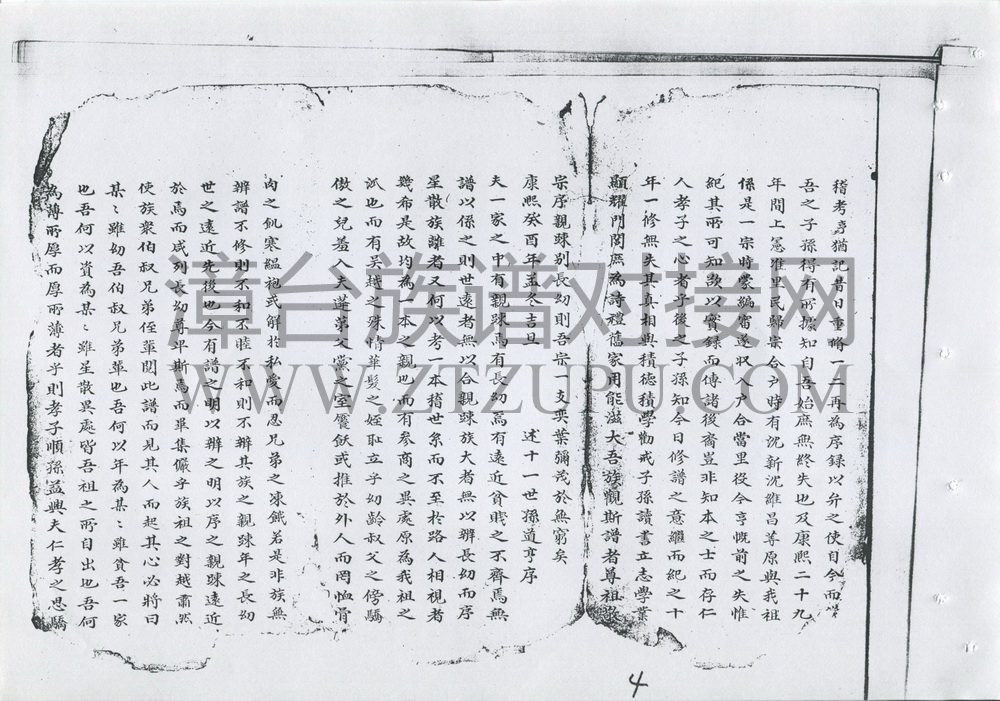 稽考亨猶記昔日重脩一二再為序録以弁之使自今而
吾之子孫得有所據知自吾始庶無終失也及康熙二十九
年間上憲准里民歸宗合户時有沈新沈維昌等原與我祖
係是一宗時蒙編審遂収入户合當里役今亨慨前之失惟
紀其所可知故以實録而傳諸後裔豈非知本之士而存仁
人孝子之心者乎後之子孫知今日修譜之意繼而紀之十
年一修無失其真相與積德積學勸戒子孫讀書立志學業
顯耀門閭庶為詩禮舊家用能滋大吾族觀斯譜者尊祖敬
宗序親踈别長幼則吾宗一支奕葉彌茂於無窮矣
康熙癸酉年孟冬吉旦
述十一世孫道亨序
夫一家之中有親踈焉有長幼焉有遠近貧賤之不齊焉無
譜以係之則世遠者無以合親踈族大者無以辨長幼而序
星散族離者又何以考一本稽世系而不至於路人相視者
幾希是故均為一本之親也而有參商之異處原為我祖之
派也而有吴越之殊情華髮之姪恥立于幼齡叔父之傍驕
傲之兒羞入夫蓬第父黨之室饔飧或推於外人而罔恤骨
肉之飢寒緼袍或解於私愛而忍兄弟之凍餓若是非族無
辨譜不修則不和不睦不和則不辨其族之親踈年之長幼
世之遠近先後也今有譜之明以辨之明以序之親踈遠近
於焉而咸列長幼尊卑斯焉而畢集儼乎族祖之對越肅然
使族衆伯叔兄弟侄輩閱此譜而見其人而起其心必將曰
某〻雖幼吾伯叔兄弟輩也吾何以年為某〻雖貧吾一家
也吾何以資為某〻雖星散異處皆吾祖之所自出也吾何
為薄所厚而厚所薄者乎則孝子順孫益興夫仁孝之思驕
4
漳台族谱对接网
WWW.ZTZUPU.COM